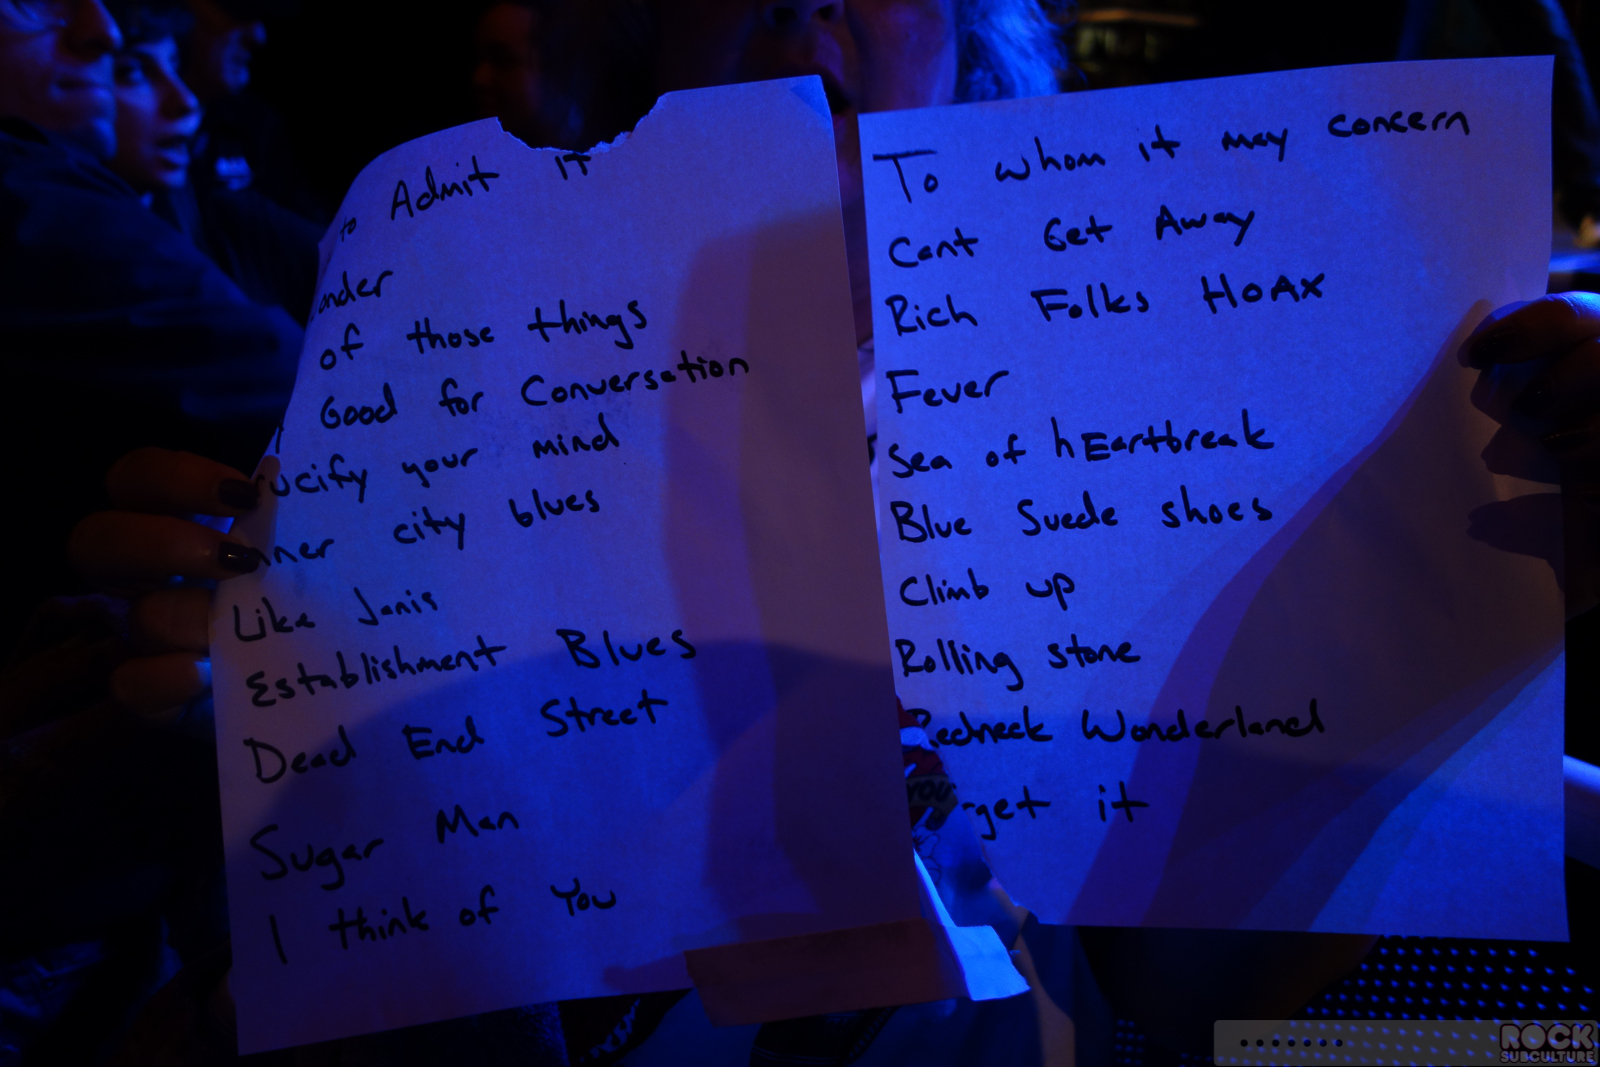 to Admit it
onder
of those things
Good for Conversation
rucify your mind
nner city blues
Like Janis
Establishment Blues
Dead End Street
Sugar Man
I think of You
To whom it may concern
Cant Get Away
Rich Folks HOAX
Fever
Sea of hEartbreak
Blue Suede shoes
Climb up
Rolling stone
Redneck Wonderland
get it
YOU
ROCK
SUBCULTURE